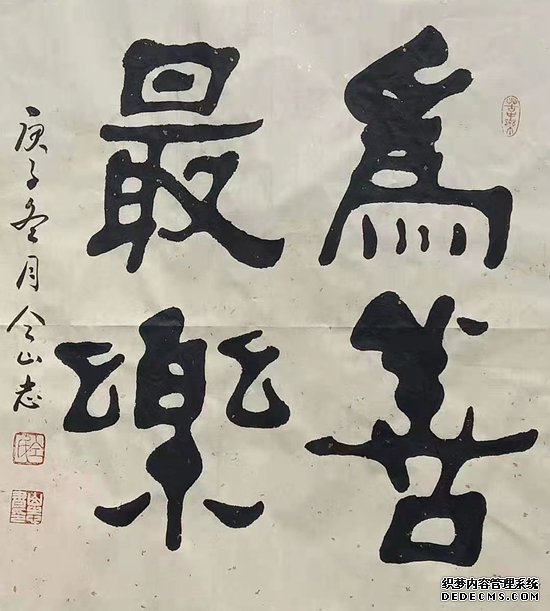 為善
最樂
庚子冬月仝山志
织梦内容管理系统
DEDECMS.COM